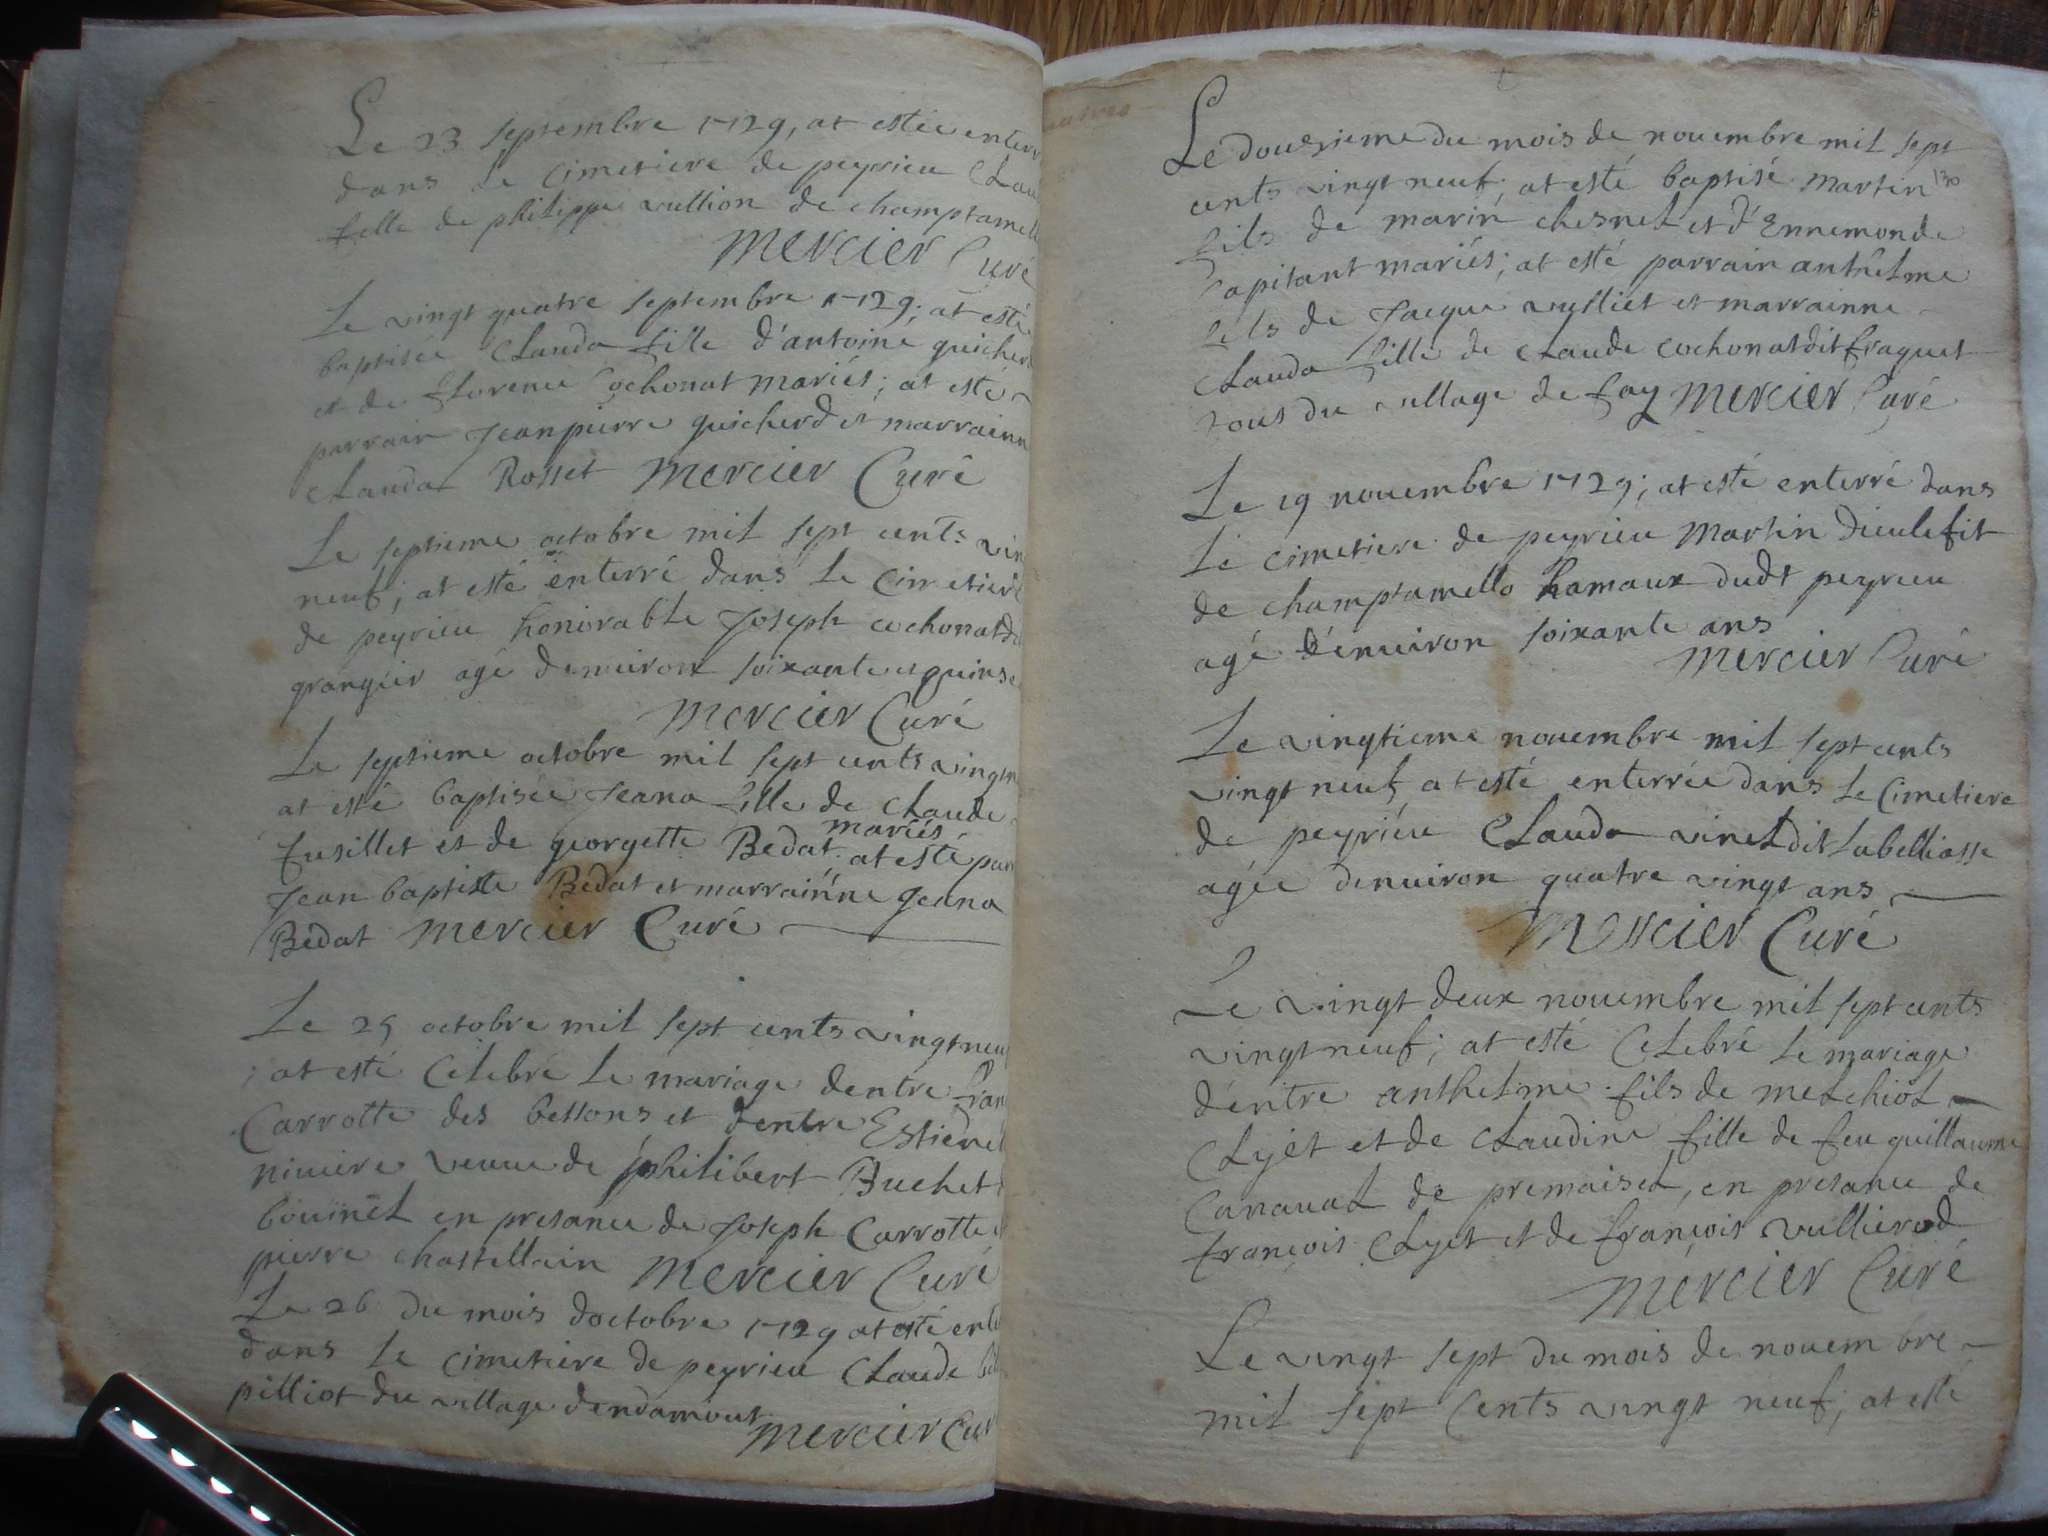 Le 23 septembre 1729, at estée enterr
dans le cimetiere de peyrieu Clau
felle de philippe vullion de champtamell
Mercier Curé
Le vingt quatre septembre 1729; at esté
baptisée Clauda fille d'antoine guicherd
et de florence Cochonat mariés; at esté
parrain Jeanpierre guicherd et marrainn
Clauda Rosset Mercier Curé
Le septieme octobre mil sept cents vin
neuf; at esté enterré dans le cimetiere
de peyrieu honorable Joseph cochonat d
grangier agé denuiron soixante et quinse
Mercier Curé
Le septieme octobre mil sept cents vingt n
at esté baptisée Jeana fille de claude
fusillet et de georgette Bedat mariés at esté par
Jean baptiste Bedat et marrainne Jeana
Bedat Mercier Curé
Le 25 octobre mil sept cents vingt neu
; at esté Celebré le mariage dentre fran
Carrotte des bessons et dentre Estien
niuiere veuue de philibert Buchet
bouinet en presance de Joseph Carrotte e
pierre chastellain Mercier Curé
Le 26 du mois doctobre 1729 at esté ente
dans le cimetiere de peyrieu Claude
pilliot du village dendamout
Mercier Cur
Le douszieme du mois de nouembre mil sept
cents vingt neuf; at esté baptisé martin
130
fils de marin chesnel et d'Ennemonde
Capitant mariés; at esté parrain anthelme
fils de Jacque vulliet et marrainne
Clauda fille de claude cochonat dit fraquet
tous du village de fay Mercier Curé
Le 19 nouembre 1729; at esté enterré dans
Le cimetiere de peyrieu Martin dieulefit
de champtamello hamaux dudt peyrieu
agé d'enuiron soixante ans
Mercier Curé
Le vingtieme nouembre mil sept cents
vingt neuf at esté enterrée dans le Cimetiere
de peyrieu Clauda vinet dit labelliasse
agée denuiron quatre vingt ans
Mercier Curé
Le vingt deux nouembre mil sept cents
vingt neuf; at esté Celebré le mariage
d'entre anthelme fils de melchiol
Clyet et de Claudine fille de feu guillaume
Canaual de premaisel, en presance de
françois Clyet et de françois vullierod
Mercier Curé
Le vingt sept du mois de nouembre
mil sept Cents vingt neuf; at esté